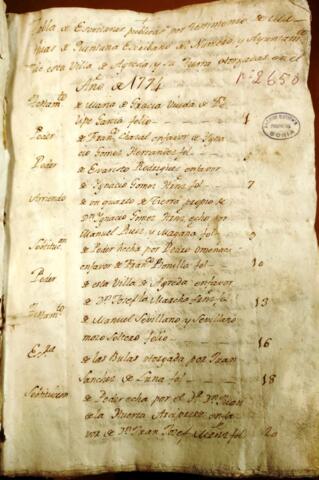 Tabla de Escrituras publicas por testimonio de Mathias
de Quintana Escribano de Numero y Ayuntamto
de esta Villa de Agreda y su tierra otorgadas en el
Año de 1774
nº 2650
ARCHIVO HISTORICO
PROVINCIAL
SORIA
Testamto de Maria de Gracia Viuda de
Phelipe Garcia folio 1
Poder de Franco enfavor de Ygnacio
Gomez Hernandez fol
Poder de Evaristo Rodriguez enfavor
de Ygnacio Gomez fol 7
Arriendo de un quarto de tierra propio de
Dn Ygnacio Gomez echo por
Manuel Ruiz y Magaña fol 9
Sostitucn de Poder hecha por Pedro
enfavor de Franco Bonilla fol 10
Poder de esta Villa de Agreda enfavor
de Dn Josef la fol 13
Testamto de Manuel Sevillano y Sevillano
mozo soltero folio 16
de las Bulas otorgada por Juan
Sanchez de Luna fol 18
Sostitucion de Poder echa por el Dr Dn Juan
de la Huerta Arcipreste enfavor
de Dn Juan Josef fol 20